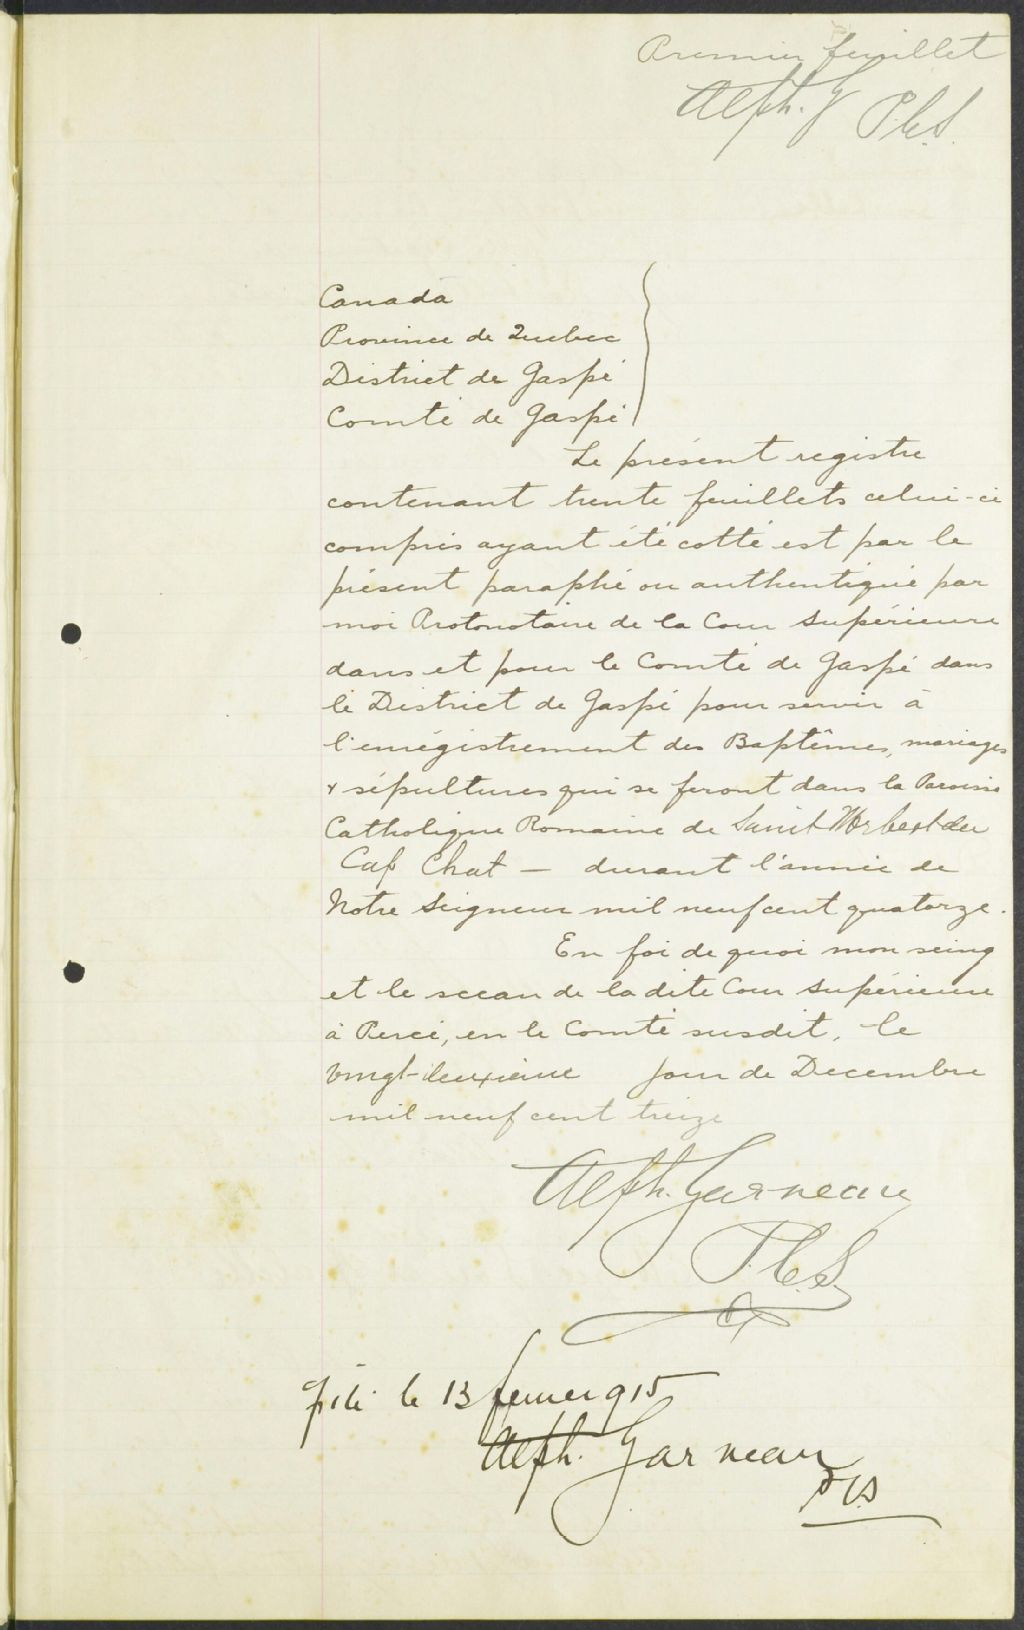 Premier feuillet
Alph. G P.C.S.
Canada
Province de Quebec
District de Gaspé
Comté de Gaspé
Le présent registre
contenant trente feuillets celui-ci
compris ayant été cotté est par le
présent paraphé ou authentiqué par
moi Protonotaire de la Cour Supérieure
dans et pour le Comté de Gaspé dans
le District de Gaspé pour servir à
l'enrégistrement des Baptêmes, mariages
& sépultures qui se feront dans la Paroisse
Catholique Romaine de Saint Norbert du
Cap Chat — durant l'année de
Notre Seigneur mil neuf cent quatorze.
En foi de quoi mon seing
et le sceau de la dite Cour Supérieure
à Percé, en le Comté susdit, le
vingt-deuxième jour de Decembre
mil neuf cent treize
Alph. Garneau
P.C.S.
filé le 13 fevrier 915
Alph. Garneau
PCS